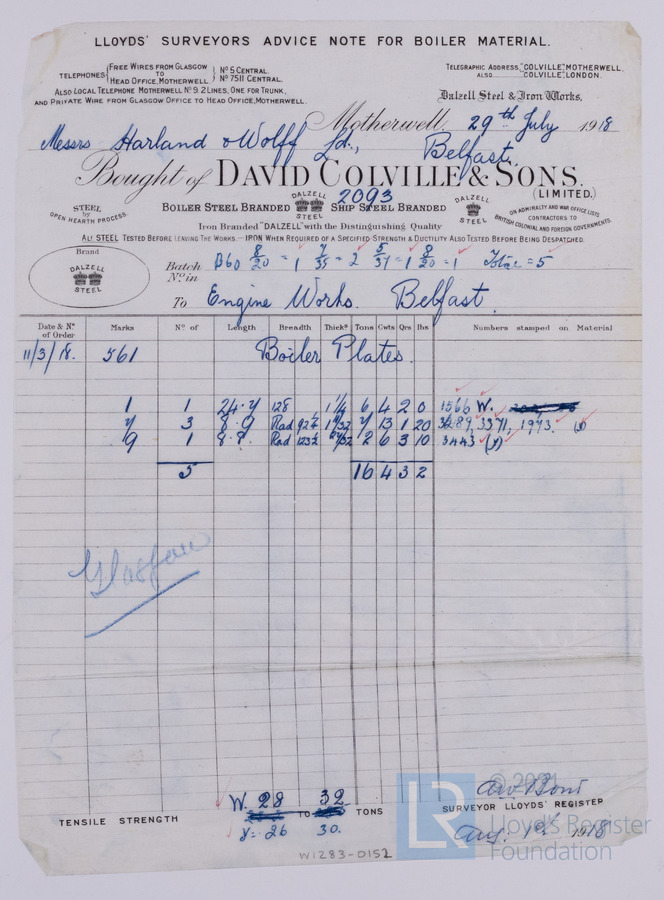 LLOYDS' SURVEYORS ADVICE NOTE FOR BOILER MATERIAL.
TELEPHONES FREE WIRES FROM GLASGOW TO HEAD OFFICE, MOTHERWELL Nº 5 CENTRAL. Nº 7511 CENTRAL.
ALSO LOCAL TELEPHONE MOTHERWELL Nº 9. 2 LINES, ONE FOR TRUNK,
AND PRIVATE WIRE FROM GLASGOW OFFICE TO HEAD OFFICE, MOTHERWELL.
TELEGRAPHIC ADDRESS, "COLVILLE", MOTHERWELL.
ALSO "COLVILLE", LONDON.
Dalzell Steel & Iron Works,
Motherwell, 29th July 1918
Messrs Harland & Wolff Ld., Belfast.
Bought of DAVID COLVILLE & SONS. (LIMITED.)
STEEL by OPEN HEARTH PROCESS.
BOILER STEEL BRANDED DALZELL STEEL 2093 SHIP STEEL BRANDED DALZELL STEEL
ON ADMIRALTY AND WAR OFFICE LISTS
CONTRACTORS TO
BRITISH COLONIAL AND FOREIGN GOVERNMENTS.
Iron Branded "DALZELL" with the Distinguishing Quality
ALL STEEL TESTED BEFORE LEAVING THE WORKS.—IRON WHEN REQUIRED OF A SPECIFIED STRENGTH & DUCTILITY ALSO TESTED BEFORE BEING DESPATCHED.
Brand
DALZELL STEEL
Batch Nº in 8/20 = 1 7/35 = 2 5/37 = 1 8/20 = 1 Total = 5
To Engine Works. Belfast.
Date & Nº of Order Marks Nº of Length Breadth Thickˢ Tons Cwts Qrs lbs Numbers stamped on Material
11/3/18. 561 Boiler Plates.
1 1 128 1¼ 6 4 2 0 1566 W.
3 8.9 Rad 13 1 20 3371, 1973.
9 1 8.8. Rad 2 6 3 10 3443
5 16 4 3 2
Glasgow
W. 28 32
TENSILE STRENGTH TO TONS
26 30.
SURVEYOR LLOYDS' REGISTER
Aug. 1st 1918
W1283-0152
LR © 2021 Lloyd's Register Foundation